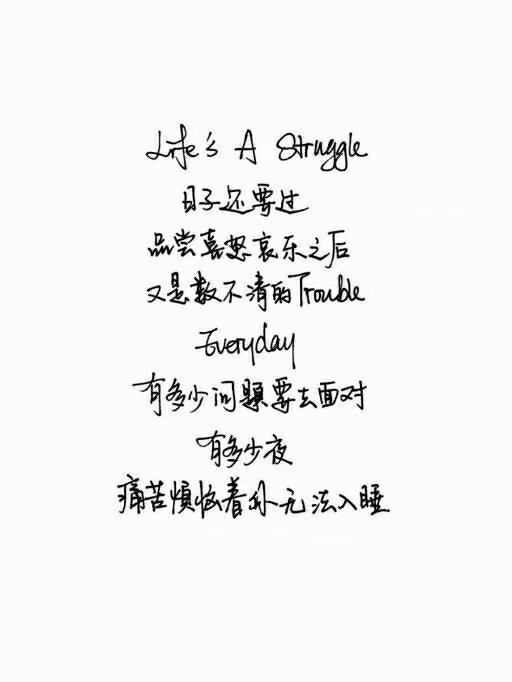 Life's A Struggle
日子还要过
品尝喜怒哀乐之后
又是数不清的Trouble
Everyday
有多少问题要去面对
有多少夜
痛苦烦恼着你无法入睡